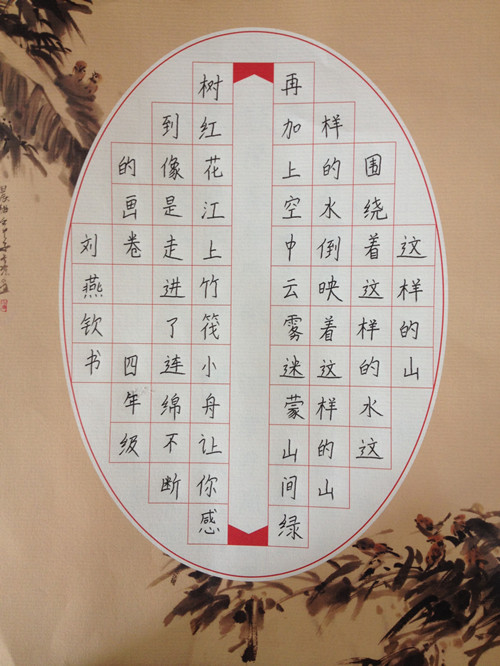 这样的山
围绕着这样的水这
样的水倒映着这样的山
再加上空中云雾迷蒙山间绿
树红花江上竹筏小舟让你感
到像是走进了连绵不断
的画卷 四年级
刘燕钦书